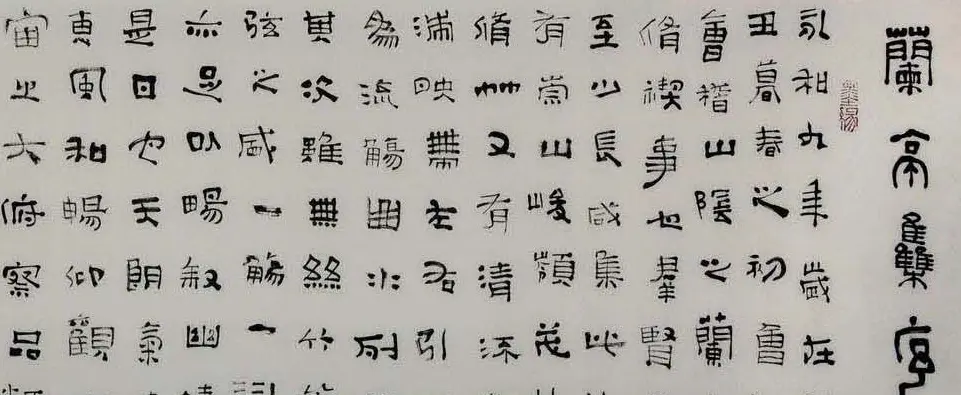 蘭亭雧序
永和九年歲在
丑暮春之初會
會稽山陰之蘭
脩禊事也羣賢
至少長咸集此
有崇山峻嶺茂
脩竹又有清流
湍映帶左右引
為流觴曲水列
其次雖無絲竹
弦之盛一觴一
亦足以暢敘幽
是日也天朗氣
惠風和暢仰觀
宙之大俯察品